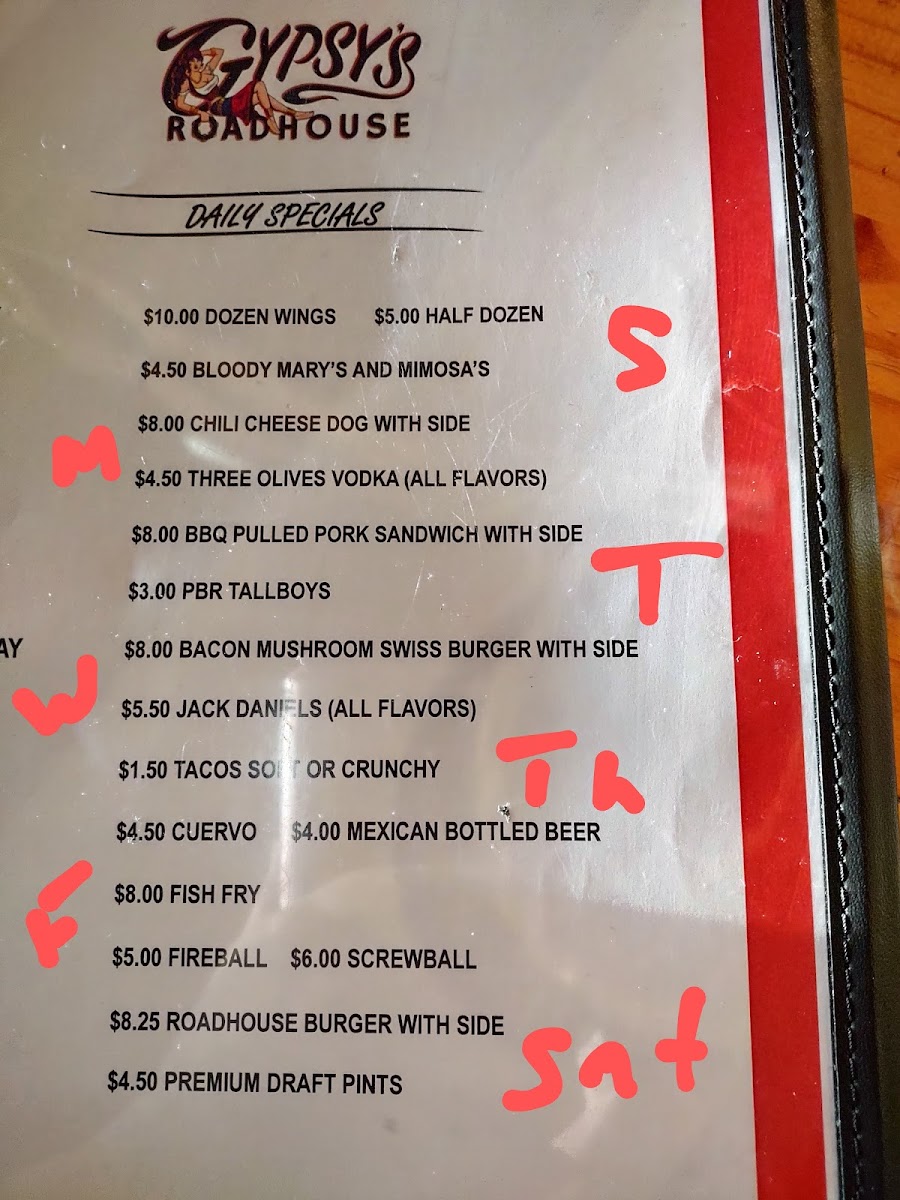 GYPSY'S
ROADHOUSE
DAILY SPECIALS
$10.00 DOZEN WINGS $5.00 HALF DOZEN
S
$4.50 BLOODY MARY'S AND MIMOSA'S
$8.00 CHILI CHEESE DOG WITH SIDE
M
$4.50 THREE OLIVES VODKA (ALL FLAVORS)
$8.00 BBQ PULLED PORK SANDWICH WITH SIDE
T
$3.00 PBR TALLBOYS
AY
$8.00 BACON MUSHROOM SWISS BURGER WITH SIDE
W
$5.50 JACK DANIELS (ALL FLAVORS)
$1.50 TACOS SOFT OR CRUNCHY
Th
$4.50 CUERVO $4.00 MEXICAN BOTTLED BEER
$8.00 FISH FRY
F
$5.00 FIREBALL $6.00 SCREWBALL
$8.25 ROADHOUSE BURGER WITH SIDE
Sat
$4.50 PREMIUM DRAFT PINTS